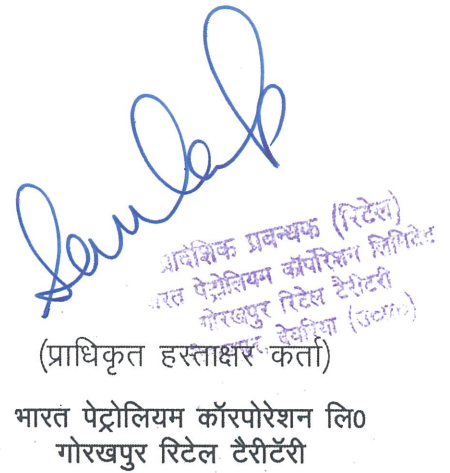 प्रादेशिक प्रबन्धक (रिटेल)
भारत पेट्रोलियम कॉर्पोरेशन लिमिटेड
गोरखपुर रिटेल टैरीटरी
देवरिया
(प्राधिकृत हस्ताक्षर कर्ता)
भारत पेट्रोलियम कॉरपोरेशन लि0
गोरखपुर रिटेल टैरीटॅरी